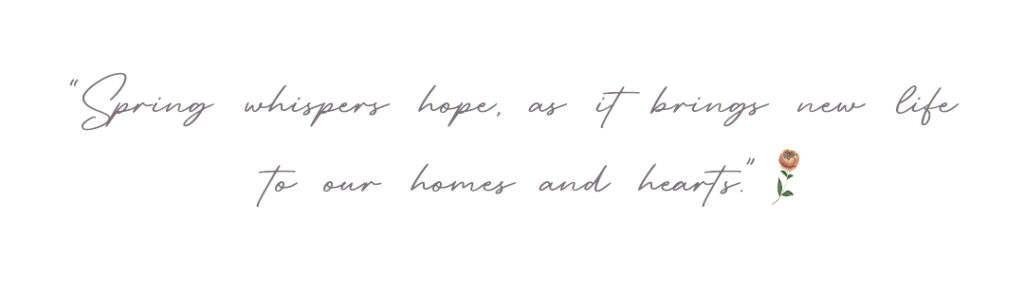 "Spring whispers hope, as it brings new life
to our homes and hearts."